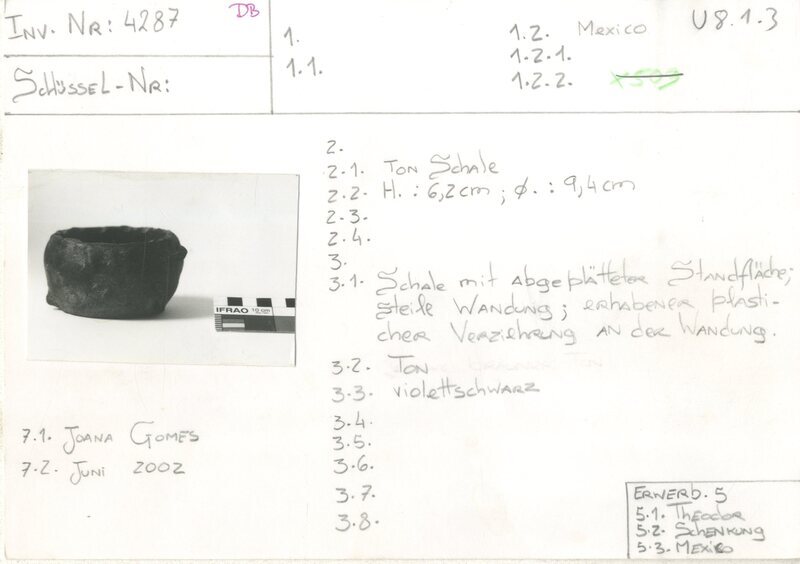 Inv. Nr: 4287
DB
1.
1.2. Mexico
U8.1.3
1.1.
1.2.1.
1.2.2.
Schlüssel-Nr:
2.
2.1. Ton Schale
2.2. H. : 6,2cm ; ø. : 9,4cm
2.3.
2.4.
3.
3.1. Schale mit abgeplätteter Standfläche;
steile Wandung; erhabener plasti-
cher Verziehrung an der Wandung.
IFRAO 10 cm
3.2. Ton
3.3. violettschwarz
3.4.
3.5.
3.6.
3.7.
3.8.
7.1. Joana Gomes
7.2. Juni 2002
Erwerb. 5
5.1. Theodor
5.2. Schenkung
5.3. Mexico